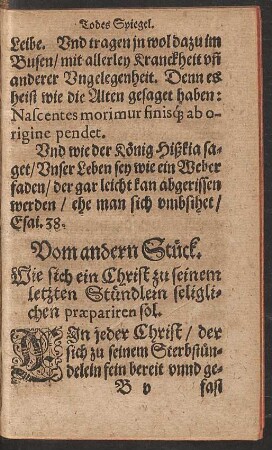 Todes Spiegel.
Leibe. Vnd tragen jn wol dazu im
Busen/ mit allerley Kranckheit vñ
anderer Vngelegenheit. Denn es
heist wie die Alten gesaget haben:
Nascentes morimur finisq́; ab o-
rigine pendet.
Vnd wie der König Hißkia sa-
get/ Vnser Leben sey wie ein Weber
faden/ der gar leicht kan abgerissen
werden/ ehe man sich vmbsihet/
Esai. 38.
Vom andern Stück.
Wie sich ein Christ zu seinem
letzten Stündlein seligli-
chen præpariren sol.
EIn jeder Christ/ der
sich zu seinem Sterbstün-
delein fein bereit vnnd ge-
B v fast